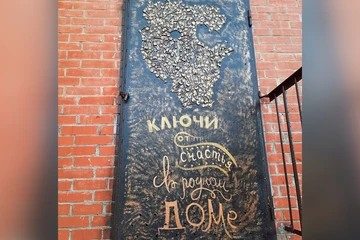 КЛЮЧИ
от
счастья
в родном
ДОМе